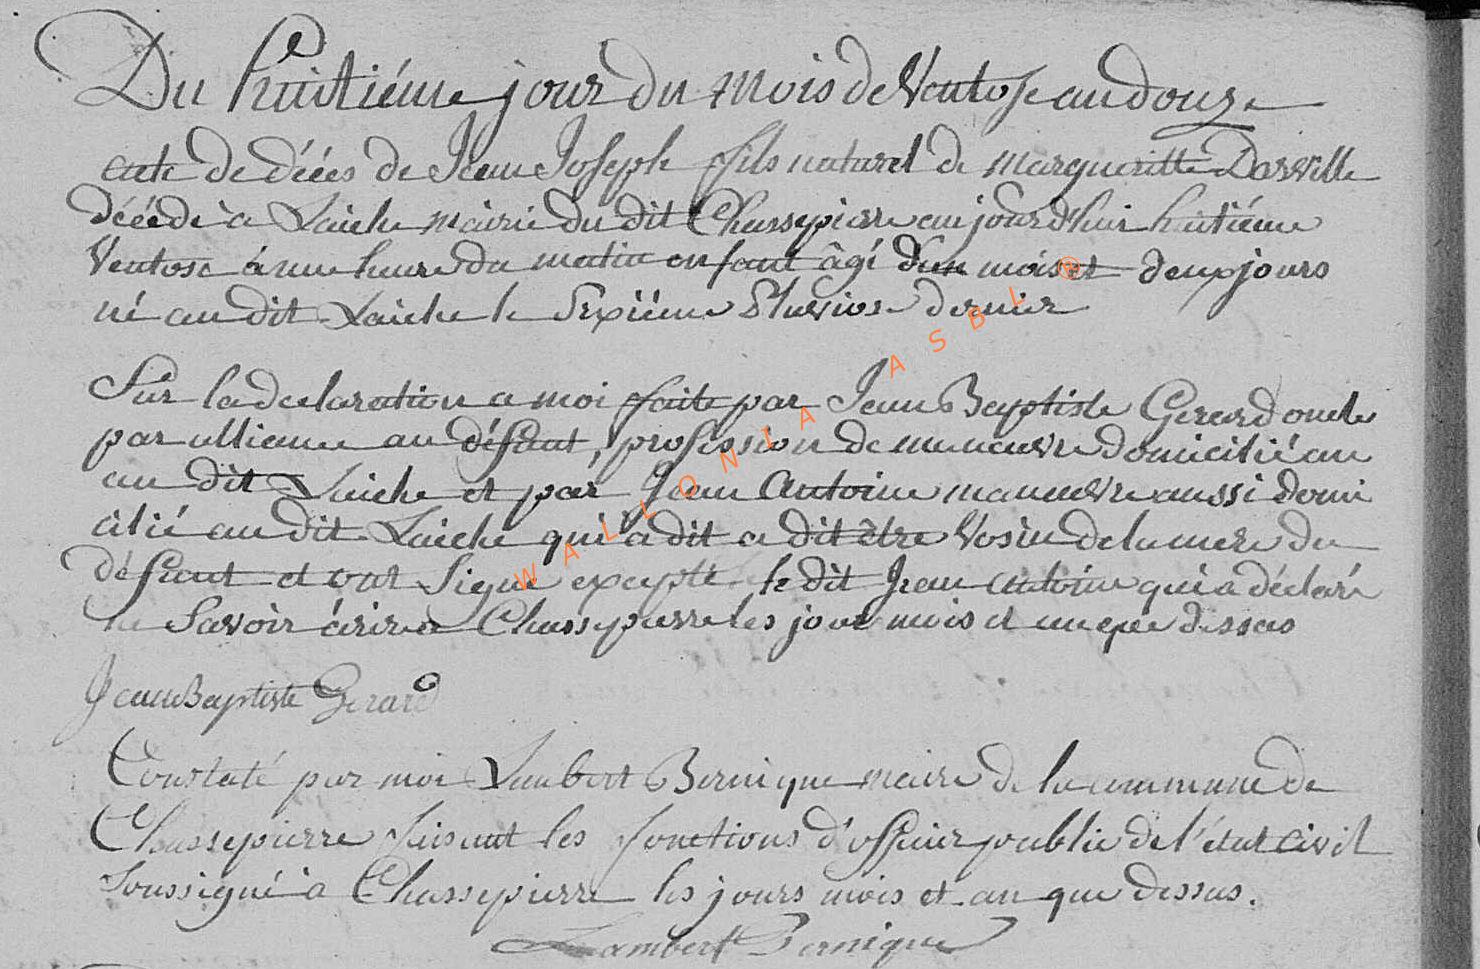 Du huitiéme jour du mois de Ventose an douze
acte de décés de Jean Joseph fils naturel de Margueritte Darville
décédé a Laiche mairie du dit Chassepierre aujourd'huir huitiéme
Ventose à une heure du matin enfant âgé d'un mois et deux jours
né au dit Laiche le Sixiéme Pluviose dernier
Sur la declaration a moi faite par Jean Baptiste Gerard oncle
par alliance au défunt, profession de maneuvre domicilié au
au dit Laiche et par Jean Antoine maneuvre aussi domi
cilié au dit Laiche qui a dit a dit être Voisin de la mere du
défunt et ont Signé excepté le dit Jean Antoine qui a déclaré
ne Savoir écrire a Chassepierre les jour mois et an que dessus
Jean Baptiste Gerard
Constaté par moi Lambert Bernique maire de la commune de
Chassepierre faisant les fonctions d'officier public de l'état civil
Soussigné à Chassepierre les jours mois et an que dessus.
Lambert Bernique
WALLONIA ASBL ®